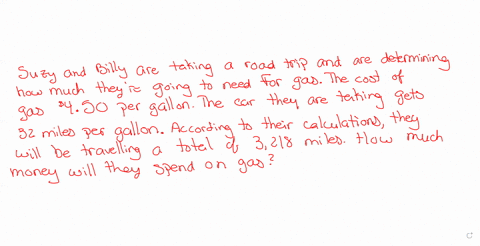 Suzy and Billy are taking a road trip and are determining
how much they're going to need for gas. The cost of
gas $4.50 per gallon. The car they are taking gets
32 miles per gallon. According to their calculations, they
will be travelling a total of 3,218 miles. How much
money will they spend on gas?